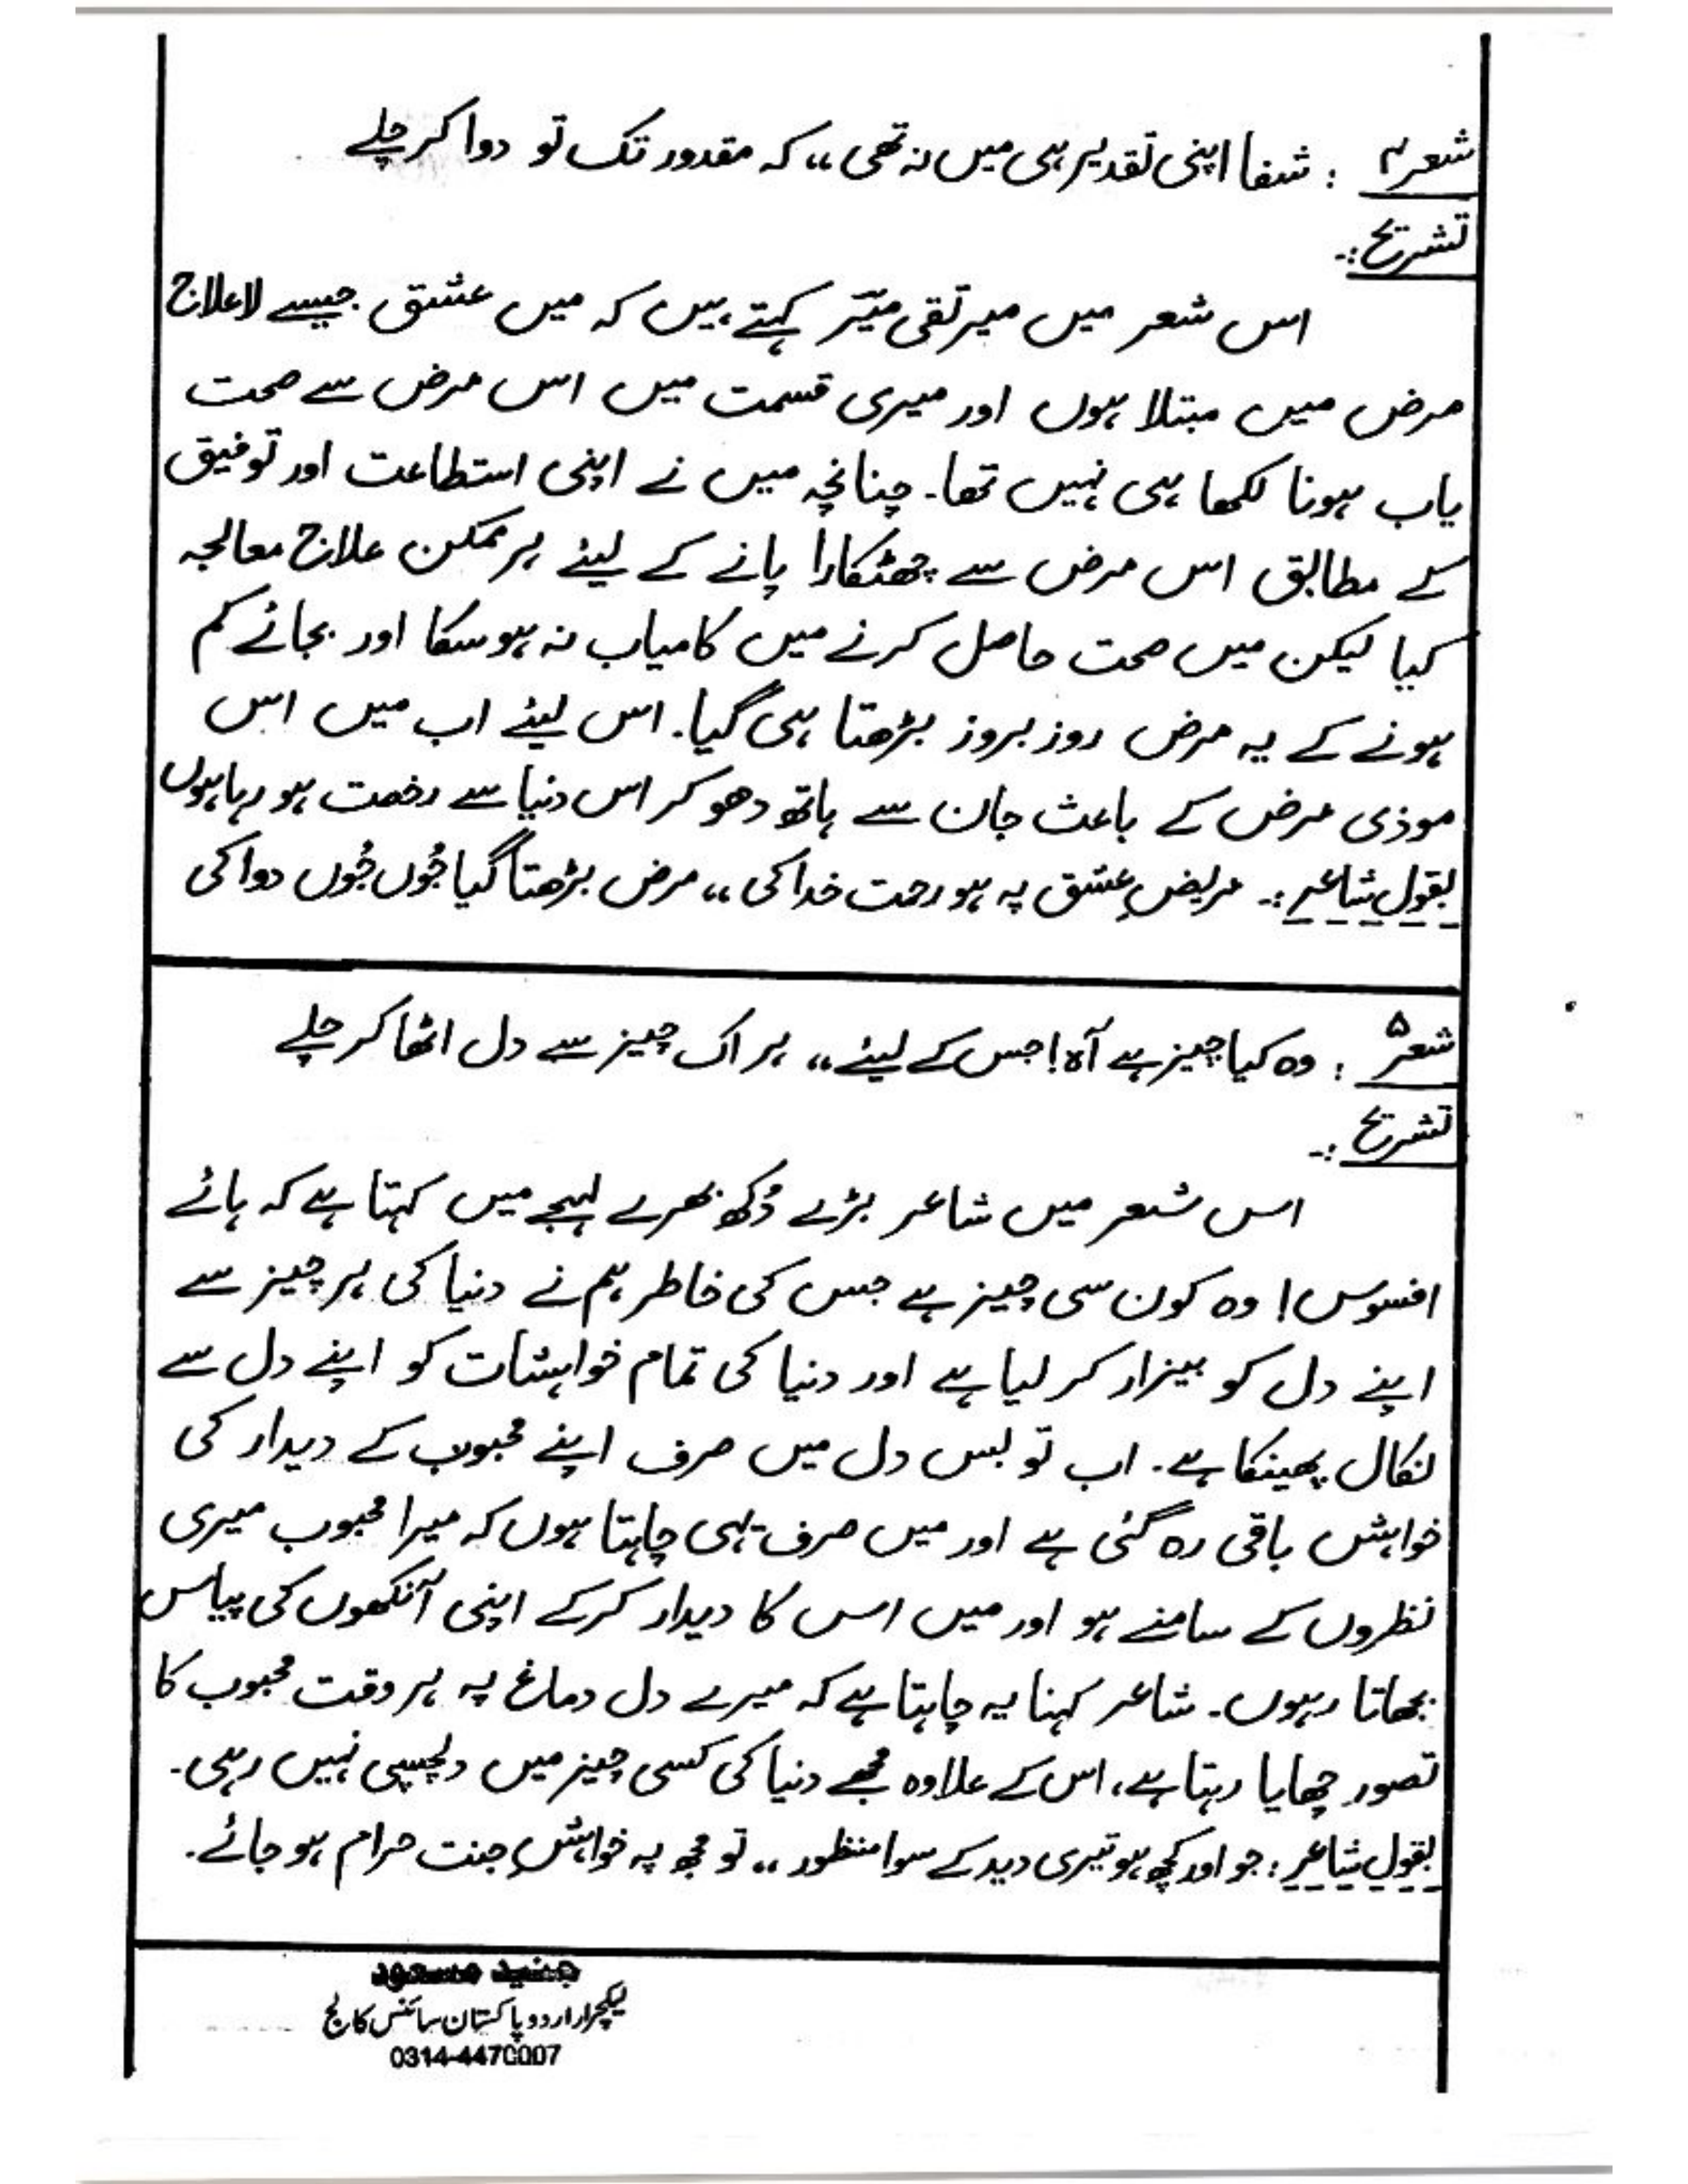 شعر۴ : شفا اپنی تقدیر ہی میں نہ تھی ،، کہ مقدور تک تو دوا کر چلے
تشریح :۔
اس شعر میں میر تقی میؔر کہتے ہیں کہ میں عشق جیسے لاعلاج
مرض میں مبتلا ہوں اور میری قسمت میں اس مرض سے صحت
یاب ہونا لکھا ہی نہیں تھا۔ چنانچہ میں نے اپنی استطاعت اور توفیق
کے مطابق اس مرض سے چھٹکارا پانے کے لیئے ہر ممکن علاج معالجہ
کیا لیکن میں صحت حاصل کرنے میں کامیاب نہ ہو سکا اور بجائے کم
ہونے کے یہ مرض روز بروز بڑھتا ہی گیا۔ اس لیئے اب میں اس
موذی مرض کے باعث جان سے ہاتھ دھو کر اس دنیا سے رخصت ہو رہا ہوں
بقول شاعر :۔ مریضِ عشق پہ ہو رحمت خدا کی ،، مرض بڑھتا گیا جُوں جُوں دوا کی
شعر۵ : وہ کیا چیز ہے آہ! جس کے لیئے ،، ہر اک چیز سے دل اٹھا کر چلے
تشریح :۔
اس شعر میں شاعر بڑے دُکھ بھرے لہجے میں کہتا ہے کہ ہائے
افسوس! وہ کون سی چیز ہے جس کی خاطر ہم نے دنیا کی ہر چیز سے
اپنے دل کو بیزار کر لیا ہے اور دنیا کی تمام خواہشات کو اپنے دل سے
نکال پھینکا ہے۔ اب تو بس دل میں صرف اپنے محبوب کے دیدار کی
خواہش باقی رہ گئی ہے اور میں صرف یہی چاہتا ہوں کہ میرا محبوب میری
نظروں کے سامنے ہو اور میں اس کا دیدار کرکے اپنی آنکھوں کی پیاس
بجھاتا رہوں۔ شاعر کہنا یہ چاہتا ہے کہ میرے دل دماغ پہ ہر وقت محبوب کا
تصور چھایا رہتا ہے، اس کے علاوہ مجھے دنیا کی کسی چیز میں دلچسپی نہیں رہی۔
بقول شاعر : جو اور کچھ ہو تیری دید کے سوا منظور ،، تو مجھ پہ خواہشِ جنت حرام ہو جائے۔
جنید مسعود
لیکچرار اردو پاکستان سائنس کالج
0314-4470007